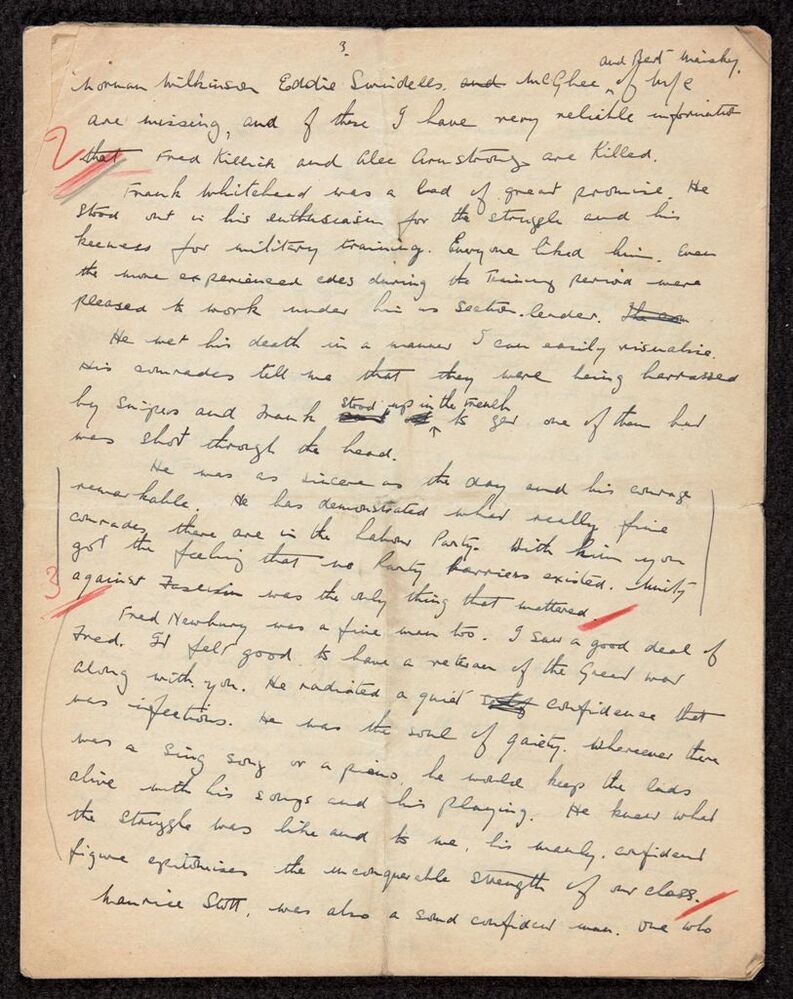 3.
and Bert Maisky,
Norman Wilkinson Eddie Swindells. and McGhee of
are missing, and of these I have very reliable information
2
that Fred Killick and Alec Armstrong are Killed.
Frank Whitehead was a lad of great promise. He
stood out in his enthusiasm for the struggle and his
keeness for military training. Everyone liked him. Even
the more experienced cdes during the Training period were
pleased to work under him as section-leader.
He met his death in a manner I can easily visualise.
His comrades tell me that they were being harrassed
by snipers and Frank stood up in the trench to get one of them but
was shot through the head.
He was as sincere as the day and his courage
remarkable. He has demonstrated what really fine
comrades there are in the Labour Party. With him you
got the feeling that no Party barriers existed. Unity
3
against Fascism was the only thing that mattered.
Fred Newbury was a fine man too. I saw a good deal of
Fred. It felt good to have a veteran of the Great war
along with you. He radiated a quiet confidence that
was infectious. He was the soul of gaiety. Wherever there
was a sing song or a piano, he would keep the lads
alive with his songs and his playing. He knew what
the struggle was like and to me, his manly, confident
figure epitomises the unconquerable strength of our class.
Maurice Stott, was also a confident man. One who